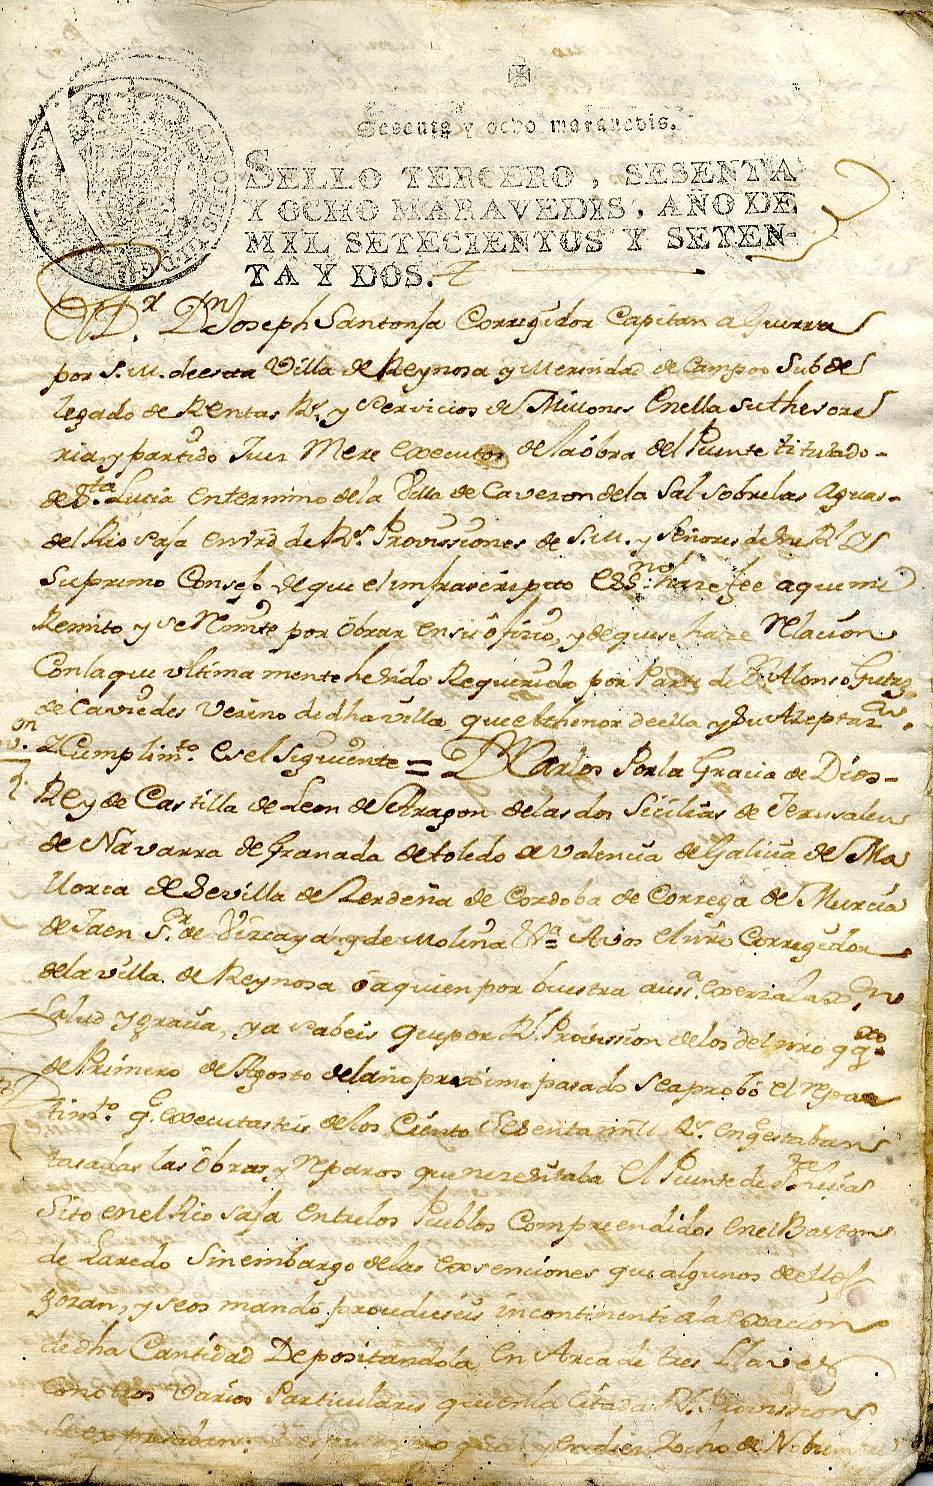 Sesenta y ocho maravedis.
SELLO TERCERO, SESENTA
Y OCHO MARAVEDIS, AÑO DE
MIL SETECIENTOS Y SETEN-
TA Y DOS.
Dn Joseph Santonja Corregidor Capitan a Guerra
por S. M. de esta Villa de Reynosa y Merindad de Campoo Subde
legado de Rentas Rs. y Servicios de Millones en ella su thesore
ria y partido Juez Mere executor de la óbra del Puente titulado
de Sta. Lucia en termino de la Villa de Cavezon de la Sal sobre las Aguas
del Rio Saja en vrd de Rs. Provissiones de S. M. y Señores de su Rl. y
Supremo Consejo de que el infraescripto Essno. haze fee a que me
Remito y se Nminte por óbrar en su ôficio, y de que se haze Relacion
Con la que ultimamente he sido Requerido por Parte de Dn. Alonso Gutrz
de Caviedes Vezino de dha villa que el thenor de ella y su Azeptazon.
y Cumplimto. es el siguiente = Dn Carlos Por la Gracia de Dios
Rey de Castilla de Leon de Aragon de las dos Sicilias de Jerusalen
de Navarra de Granada de toledo de Valencia de Galicia de Ma
llorca de Sevilla de Zerdeña de Cordoba de Correga de Murcia
de Jaen Sr. de Vizcaya y de Molina &a A vos el nro Corregidor
de la villa de Reynosa ó a quien por buestra auss.a exerza la xon
Salud y gracia, ya sabeis que por Rl. Provission de los del nro
de Primero de Agosto del año proximo pasado se aprobó el repar
timto. q.e executasteis de los Ciento setenta mill Rs. en q.e estaban
tasadas las óbras y Reparos que nezesitaba el Puente de Sta Lucia
Sito en el Rio Saja entre los Pueblos Comprendidos en el Baston
de Laredo sin embargo de las exsenciones que algunos de ellos
gozan, y se os mandó prozedieseis incontinenti a la exaccion
de dha Cantidad Depositandola en Arca de tres Llaves
con otros varios Particulares que en la citada Rl. Provission
se expresaban: y en diez y ocho de Nobiembre